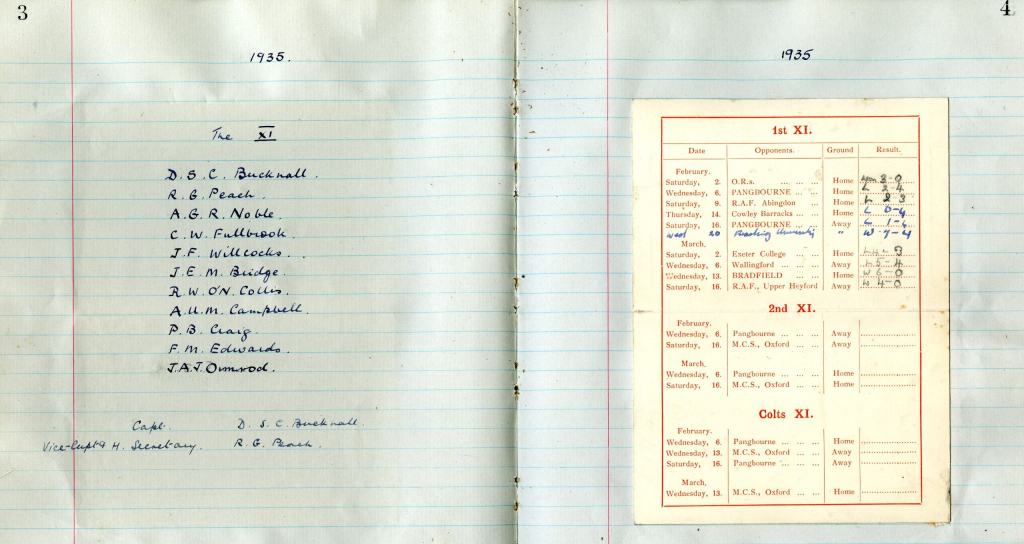 3
1935.
The XI
D. S. C. Bucknall.
R. G. Peach.
A. G. R. Noble.
C. W. Fullbrook.
J. F. Willcocks.
J. E. M. Bridge.
R. W. O'N. Collis.
A. U. M. Campbell.
P. B. Craig.
F. M. Edwards.
J. A. J. Ormrod.
Capt. D. S. C. Bucknall.
Vice-Capt & H. Secretary. R. G. Peach.
4
1935
1st XI.
Date Opponents. Ground Result.
February.
Saturday, 2. O.R.s. ... ... ... Home 3-0
Wednesday, 6. PANGBOURNE ... ... Home L 2-4
Saturday, 9. R.A.F. Abingdon ... Home L 2-3
Thursday, 14. Cowley Barracks ... ... Home L 0-4
Saturday, 16. PANGBOURNE ... ... Away L 1-4
Wed 20 Reading University " W 7-4
March.
Saturday, 2. Exeter College ... ... Home
Wednesday, 6. Wallingford ... ... ... Away L 5-4
Wednesday, 13. BRADFIELD ... ... ... Home W 6-0
Saturday, 16. R.A.F., Upper Heyford Away W 4-0
2nd XI.
February.
Wednesday, 6. Pangbourne ... ... ... Away
Saturday, 16. M.C.S., Oxford ... ... Away
March.
Wednesday, 6. Pangbourne ... ... ... Home
Saturday, 16. M.C.S., Oxford ... ... Home
Colts XI.
February.
Wednesday, 6. Pangbourne ... ... ... Home
Wednesday, 13. M.C.S., Oxford ... ... Away
Saturday, 16. Pangbourne ... ... ... Away
March.
Wednesday, 13. M.C.S., Oxford ... ... Home